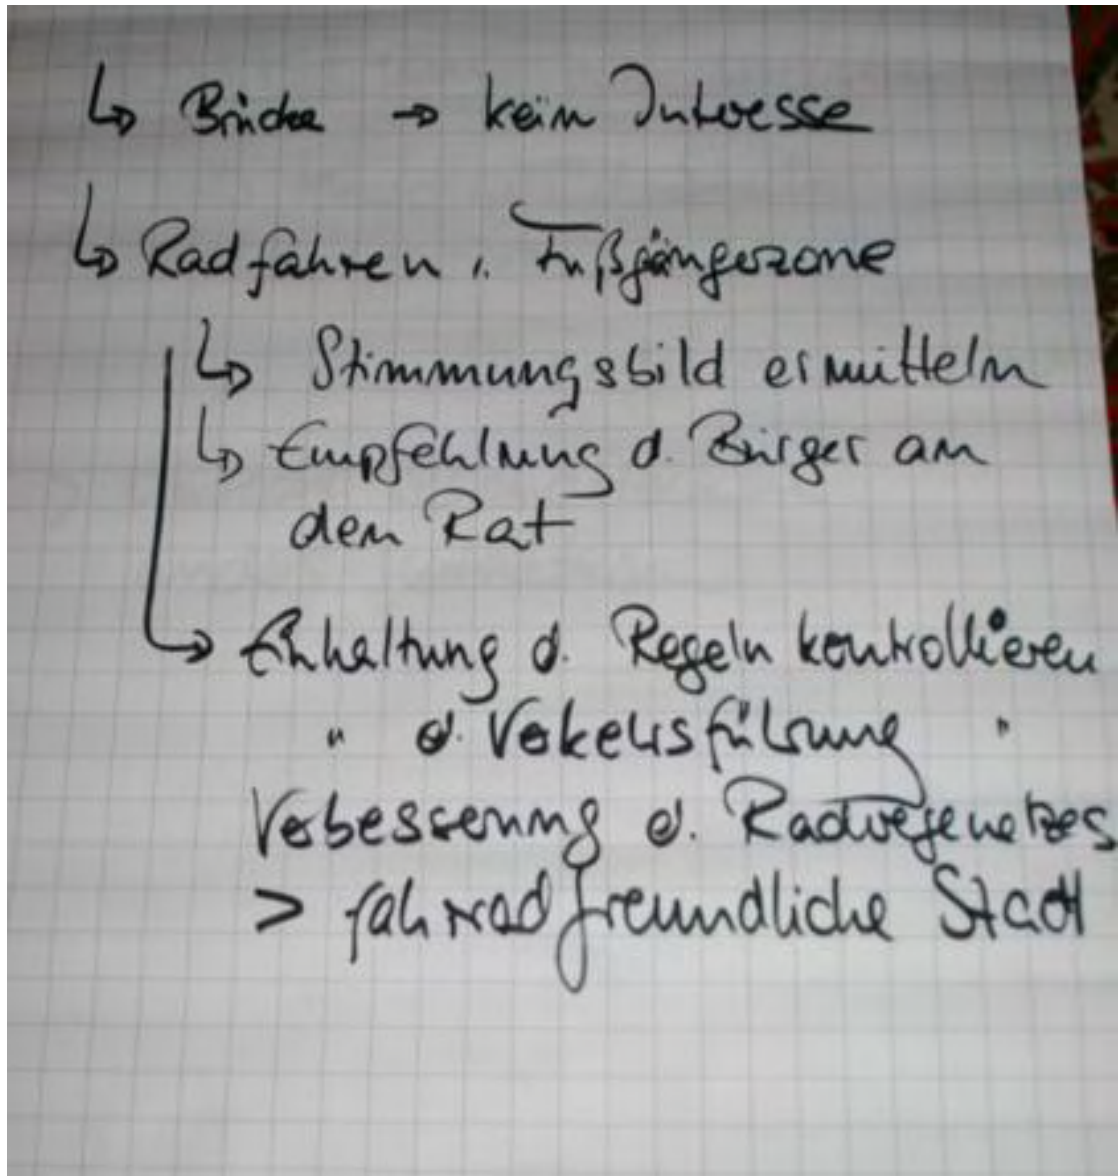 ↳ Brücke → kein Interesse
↳ Radfahren i. Fußgängerzone
↳ Stimmungsbild ermitteln
↳ Empfehlung d. Bürger an
den Rat
↳ Einhaltung d. Regeln kontrollieren
" d. Verkehrsführung "
Verbesserung d. Radwegenetzes
> fahrradfreundliche Stadt